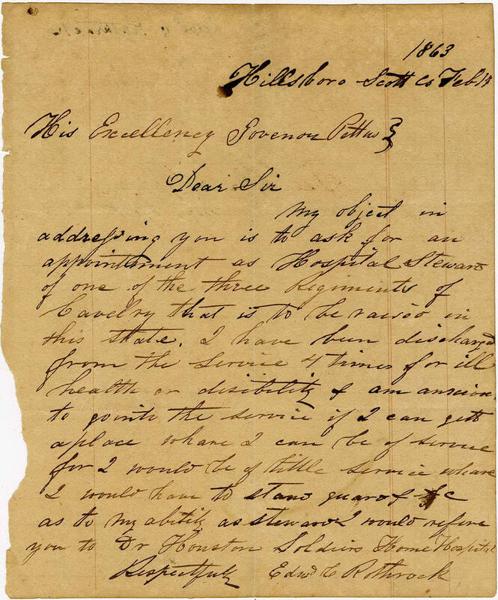 1863
Hillsboro Scott Co Feb 14
His Excellency Govenor Pettus }
Dear Sir
My object in
addressing you is to ask for an
appointment as Hospital Steward
of one of the three Regiments of
Cavelry that is to be raised in
this state. I have been discharged
from the service 4 times for ill
health or disibility & am anxious
to go into the service if I can get
a place whare I can be of service
for I would be of little service whare
I would have to stand guard & &c
as to my ability as steward I would refere
you to Dr Houston Soldiers Home Hospital
Respectfully Edwd C Rothrock